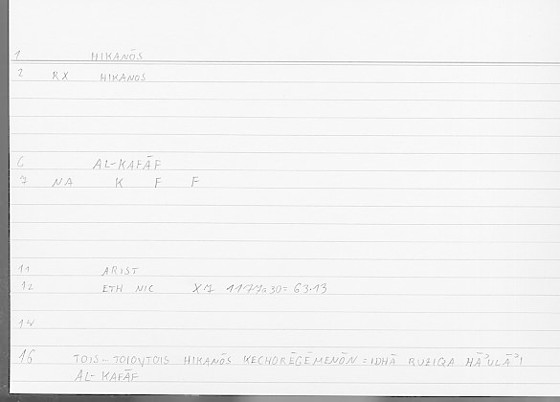 1 HIKANŌS
2 RX HIKANOS
6 AL-KAFĀF
7 NA K F F
11 ARIST
12 ETH NIC X7 1177a30=63.13
14
16 TOIS-TOIOYTOIS HIKANŌS KECHORĒGĒMENŌN=IDHĀ RUZIQA HĀʾULĀʾI
AL-KAFĀF